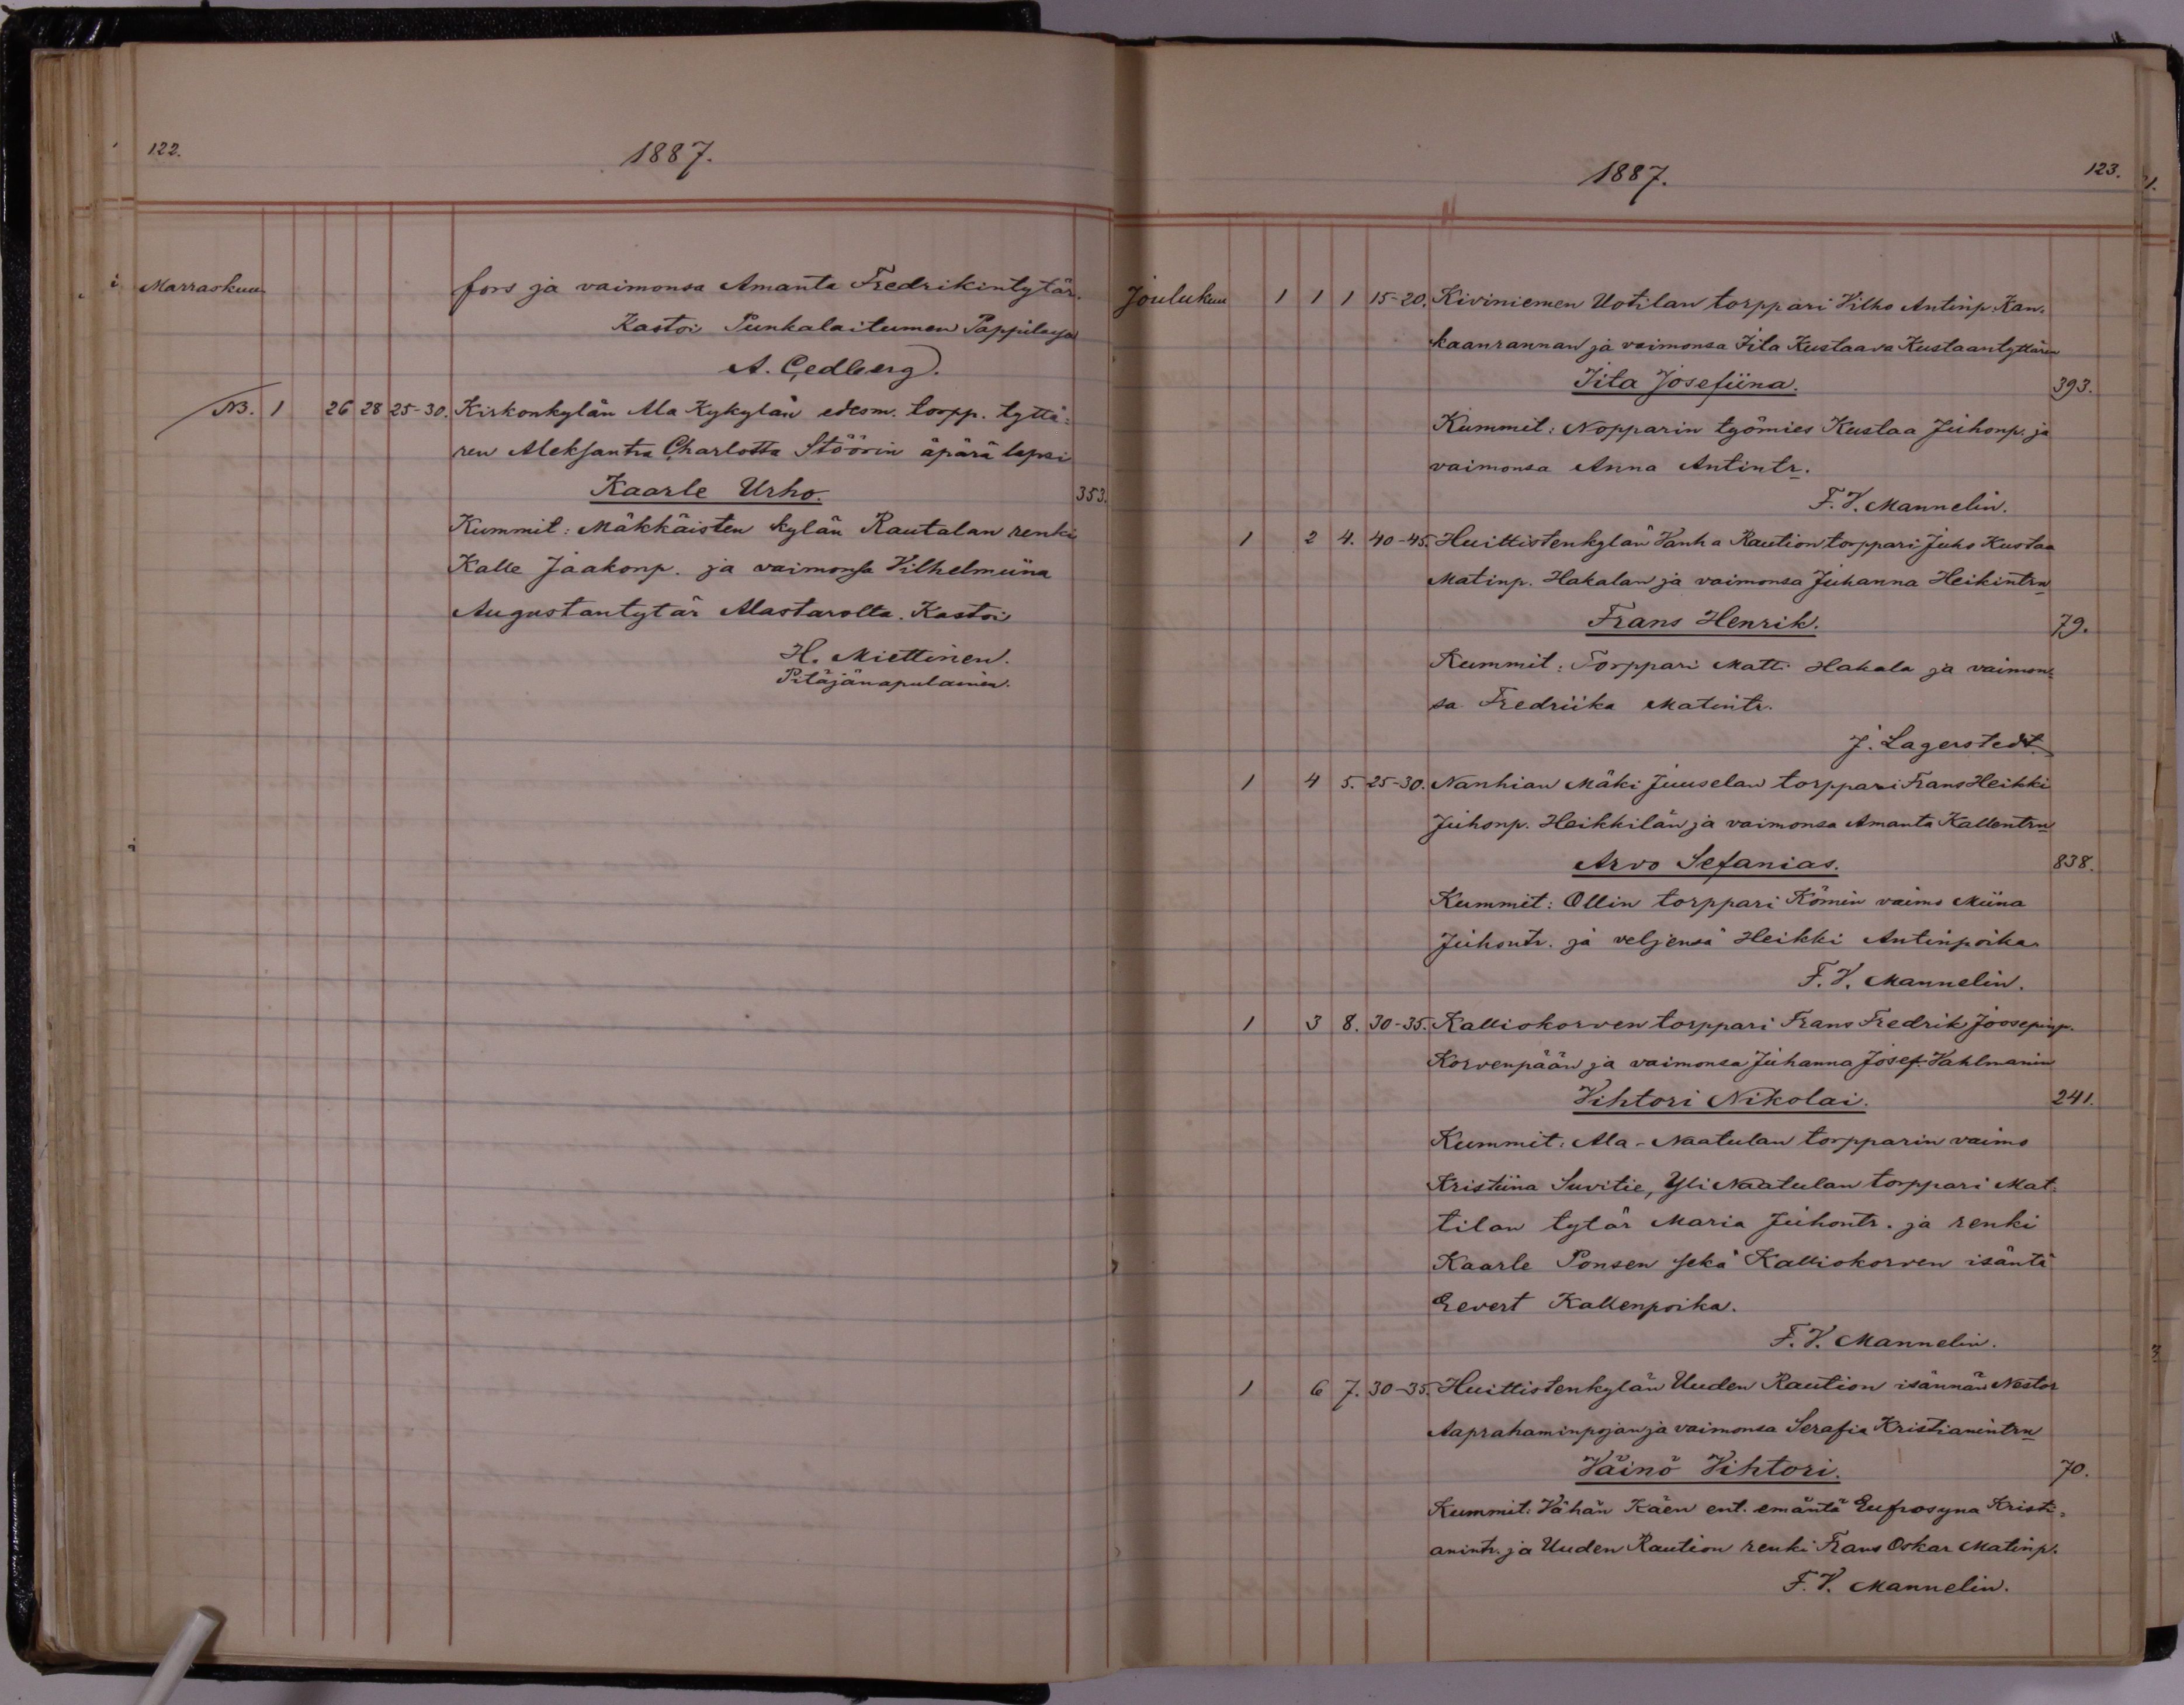 122.
1887.
Marraskuu
fors ja vaimonsa Amanta Fredrikintytär.
Kastoi Punkalaitumen Pappilassa
A. Cedberg.
NB. 1 26 28 25-30. Kirkonkylän Ala Kykylän edesm. torpp. tyttä-
ren Aleksantra Charlotta Stöörin äpärä lapsi
Kaarle Urho. 353.
Kummit: Mäkkäisten kylän Rautalan renki
Kalle Jaakonp. ja vaimonsa Vilhelmiina
Augustantytär Alastarolta. Kastoi
H. Miettinen.
Pitäjänapulainen.
1887.
123.
Joulukuu 1 1 1 15-20. Kiviniemen Uotilan torppari Vilho Antinp. Kan-
kaanrannan ja vaimonsa Iita Kustaava Kustaantyttären
Iita Josefiina. 393.
Kummit: Nopparin työmies Kustaa Juhonp. ja
vaimonsa Anna Antintr.
F. V. Mannelin.
1 2 4. 40-45. Huittistenkylän Vanha Raution torppari Juho Kustaa
Matinp. Hakalan ja vaimonsa Juhanna Heikintrn
Frans Henrik. 79.
Kummit: Torppari Matti Hakala ja vaimon-
sa Fredriika Matintr.
J. Lagerstedt.
1 4 5. 25-30. Nanhian Mäki Juuselan torppari Frans Heikki
Juhonp. Heikkilän ja vaimonsa Amanta Kallentrn
Arvo Sefanias. 838.
Kummit: Ollin torppari Kömin vaimo Miina
Juhontr. ja veljensä Heikki Antinpoika.
F. V. Mannelin.
1 3 8. 30-35. Kalliokorven torppari Frans Fredrik Joosepinp.
Korvenpään ja vaimonsa Juhanna Josef. Vahlmanin
Vihtori Nikolai. 241.
Kummit: Ala-Naatulan torpparin vaimo
Kristiina Suvitie, Yli Naatulan torppari Mat-
tilan tytär Maria Juhontr. ja renki
Kaarle Ponsen sekä Kalliokorven isäntä
Eevert Kallenpoika.
F. V. Mannelin.
1 6 7. 30-35. Huittistenkylän Uuden Raution isännän Nestor
Aaprahaminpojan ja vaimonsa Serafia Kristianintrn
Väinö Vihtori. 70.
Kummit: Vähän Käen ent. emäntä Eufrosyna Kristi-
anintr. ja Uuden Raution renki Frans Oskar Matinp.
F. V. Mannelin.